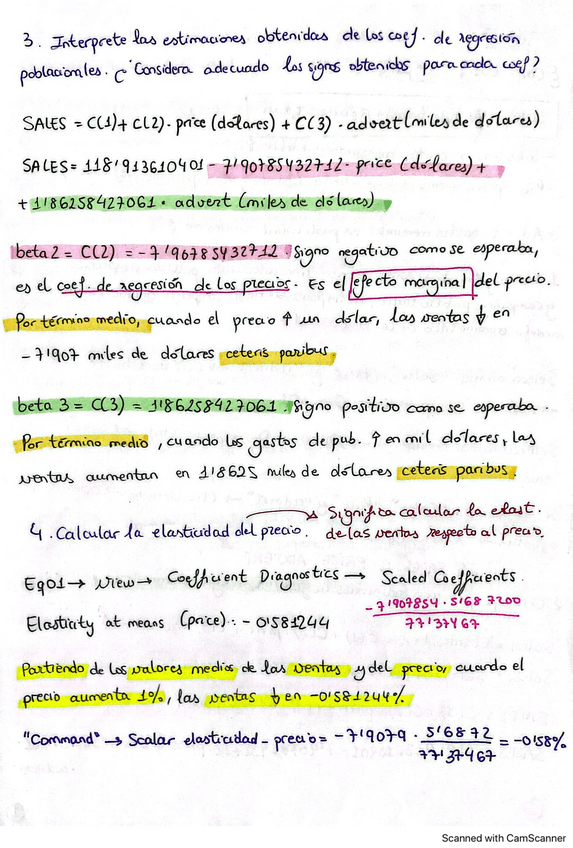 3. Interprete las estimaciones obtenidas de los coef. de regresión
poblacionales. ¿Considera adecuado los signos obtenidos para cada coef?
SALES = C(1) + C(2) · price (dólares) + C(3) · advert (miles de dólares)
SALES = 118'913610401 - 7'90785432712 · price (dólares) +
+ 1'86258427061 · advert (miles de dólares)
beta 2 = C(2) = -7'90785432712. Signo negativo como se esperaba,
es el coef. de regresión de los precios. Es el efecto marginal del precio.
Por término medio, cuando el precio ↑ un dólar, las ventas ↓ en
-7'907 miles de dólares ceteris paribus.
beta 3 = C(3) = 1'86258427061. Signo positivo como se esperaba.
Por término medio, cuando los gastos de pub. ↑ en mil dólares, las
ventas aumentan en 1'8625 miles de dólares ceteris paribus.
→ Significa calcular la elast.
4. Calcular la elasticidad del precio. de las ventas respecto al precio.
Eq01 → view → Coefficient Diagnostics → Scaled Coefficients.
-7'907854 · 5'687200
Elasticity at means (price): -0'581244
77'37467
Partiendo de los valores medios de las ventas y del precio, cuando el
precio aumenta 1%, las ventas ↓ en -0'581244%.
"Command" → Scalar elasticidad_precio = -7'9079 · 5'6872 / 77'37467 = -0'58%
Scanned with CamScanner